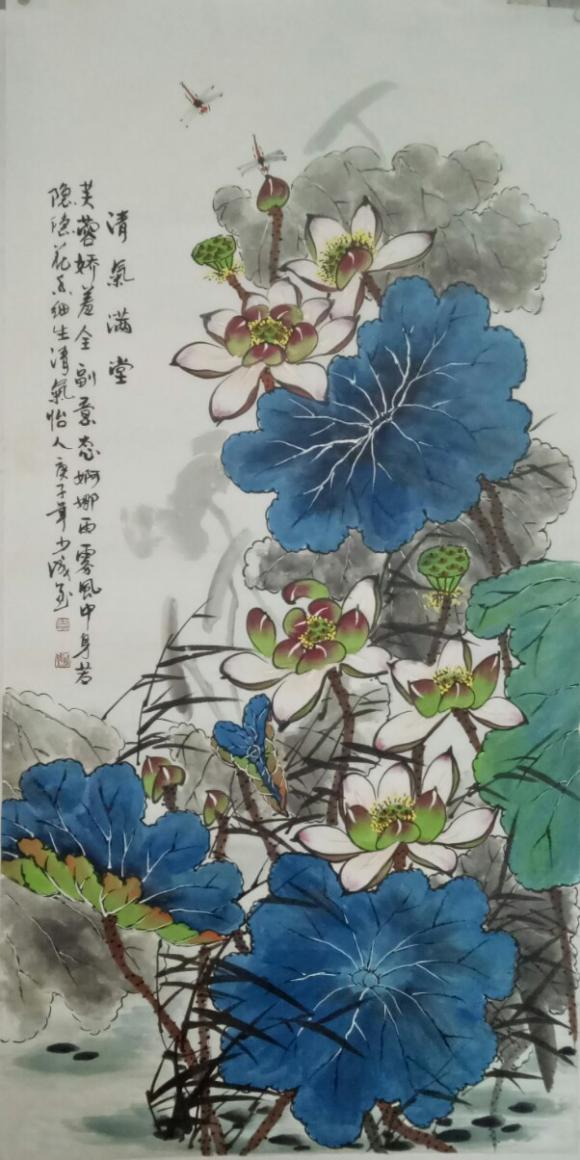 清氣满堂
芙蓉娇羞全副景态婀娜雨雾風中身若
隐隐花子细生清氣怡人庚子年少成画